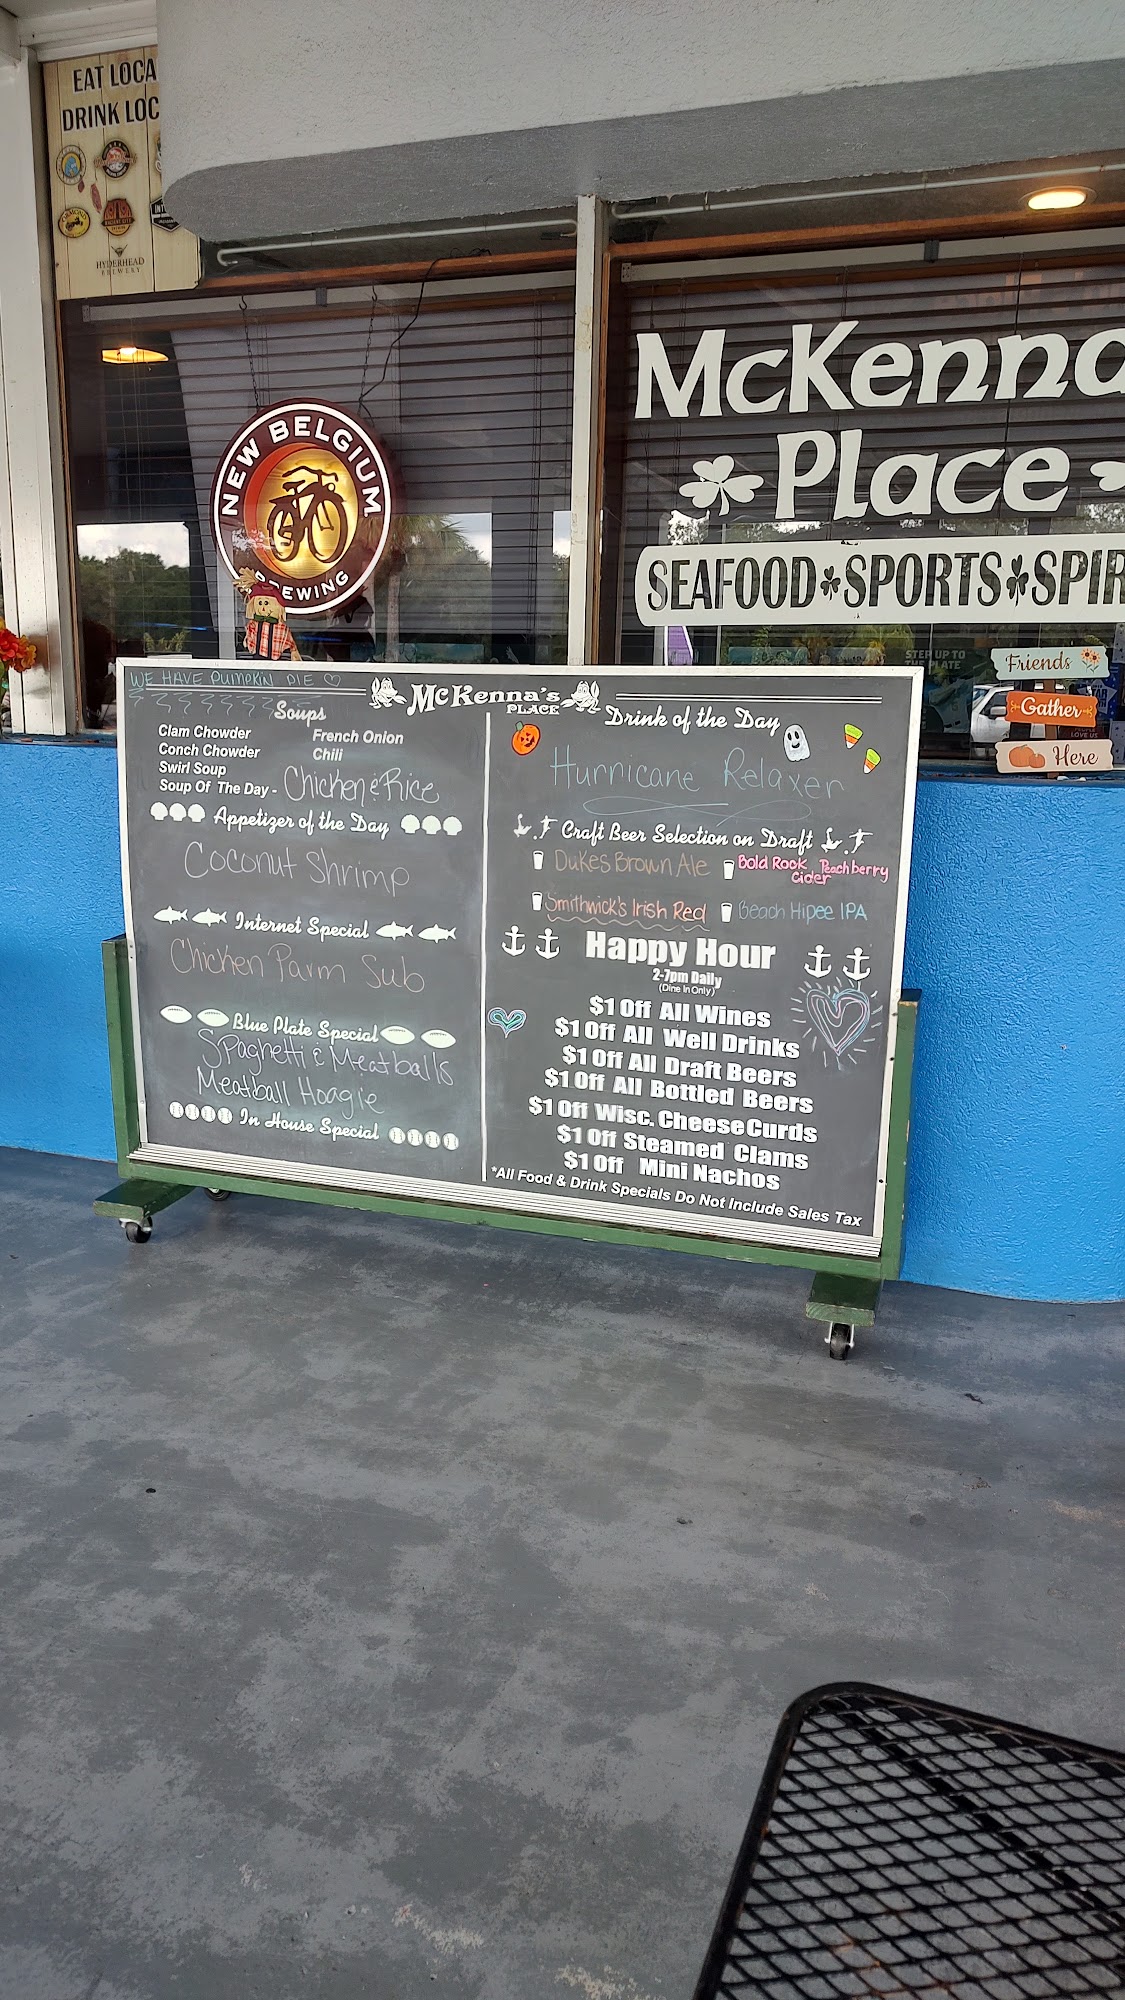 EAT LOCA
DRINK LOC
HYDERHEAD
BREWERY
NEW BELGIUM
BREWING
McKenna
Place
SEAFOOD SPORTS SPIR
STEP UP TO
THE PLATE
Friends
Gather
Here
WE HAVE PUMPKIN PIE
McKenna's
PLACE
Soups
Clam Chowder
French Onion
Conch Chowder
Chili
Swirl Soup
Soup Of The Day - Chicken & Rice
Appetizer of the Day
Coconut Shrimp
Internet Special
Chicken Parm Sub
Blue Plate Special
Spaghetti & Meatballs
Meatball Hoagie
In House Special
Drink of the Day
Hurricane Relaxer
Craft Beer Selection on Draft
Dukes Brown Ale
Bold Rock Peachberry
Cider
Smithwick's Irish Red
Beach Hipee IPA
Happy Hour
2-7pm Daily
(Dine In Only)
$1 Off All Wines
$1 Off All Well Drinks
$1 Off All Draft Beers
$1 Off All Bottled Beers
$1 Off Wisc. Cheese Curds
$1 Off Steamed Clams
$1 Off Mini Nachos
*All Food & Drink Specials Do Not Include Sales Tax